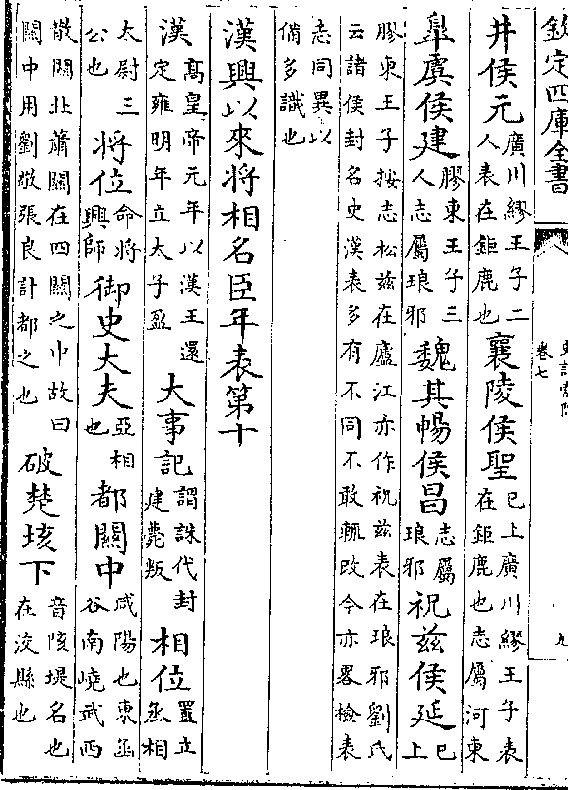 欽定四庫全書
史記索隱
卷七
九
井侯元廣川繆王子二人表在鉅鹿也襄陵侯聖已上廣川繆王子表在鉅鹿也志屬河東
皐虞侯建膠東王子三人志屬琅邪魏其暢侯昌志屬琅邪祝兹侯延已上
膠東王子按志松兹在廬江亦作祝兹表在琅邪劉氏云諸侯封名史漢表多有不同不敢輒改今亦畧檢表
志同異以備多識也
漢興以來將相名臣年表第十
漢高皇帝元年以漢王還定雍明年立太子盈大事記謂誅伐封建薨叛相位置立丞相
太尉三公也將位命將興師御史大夫亞相也都關中咸陽也東函谷南嶢武西
散關北蕭關在四關之中故曰關中用劉敬張良計都之也破楚垓下音陔堤名也在洨縣也